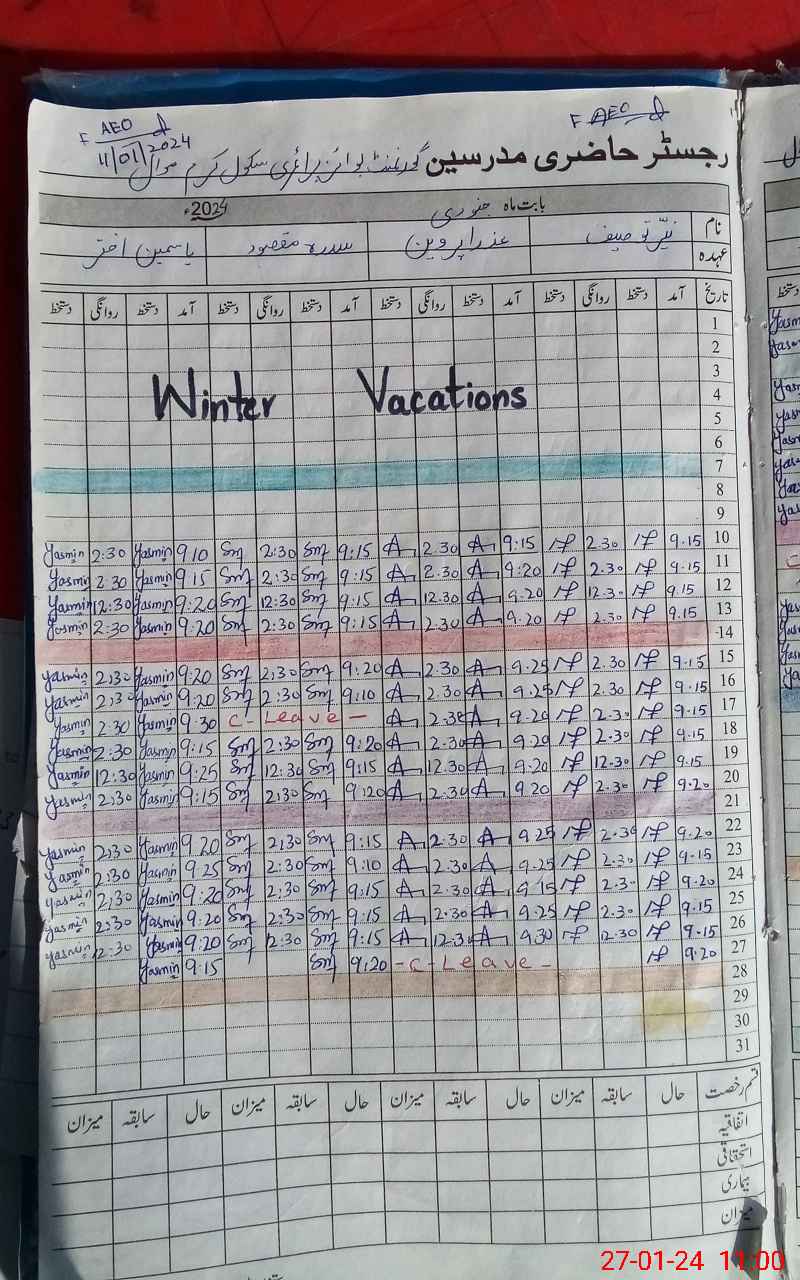 F AEO
F AEO
11/01/2024
رجسٹر حاضری مدرسین گورنمنٹ بوائز پرائمری سکول کرم موال
بابت ماہ جنوری 2024ء
نام نیّر توصیف عذرا پروین سدرہ مقصود یاسمین اختر
عہدہ
تاریخ آمد دستخط روانگی دستخط آمد دستخط روانگی دستخط آمد دستخط روانگی دستخط آمد دستخط روانگی دستخط
1
2
3
Winter Vacations 4
5
6
7
8
9
Yasmin 2:30 Yasmin 9:10 Sm 2:30 Sm 9:15 A 2.30 A 9:15 2.30 9.15 10
Yasmin 2:30 Yasmin 9:15 Sm 2:30 Sm 9:15 A 2.30 A 9:20 2.30 9.15 11
Yasmin 12:30 Yasmin 9:20 Sm 12:30 Sm 9:15 A 12.30 A 9.20 12.30 9.15 12
Yasmin 2:30 Yasmin 9:20 Sm 2:30 Sm 9:15 A 2.30 A 9.20 2.30 9.15 13
14
Yasmin 2:30 Yasmin 9:20 Sm 2:30 Sm 9:20 A 2.30 A 9.25 2.30 9.15 15
Yasmin 2:30 Yasmin 9:20 Sm 2:30 Sm 9:10 A 2.30 A 9.25 2.30 9.15 16
Yasmin 2:30 Yasmin 9:30 C-Leave- A 2.30 A 9.20 2.30 9.15 17
Yasmin 2:30 Yasmin 9:15 Sm 2:30 Sm 9:20 A 2.30 A 9.20 2.30 9.15 18
Yasmin 12:30 Yasmin 9:25 Sm 12:30 Sm 9:15 A 12.30 A 9.20 12.30 9.15 19
Yasmin 2:30 Yasmin 9:15 Sm 2:30 Sm 9:20 A 2.30 A 9.20 2.30 9.20 20
21
Yasmin 2:30 Yasmin 9.20 Sm 2:30 Sm 9:15 A 2.30 A 9.25 2.30 9.20 22
Yasmin 2:30 Yasmin 9.25 Sm 2:30 Sm 9:10 A 2.30 A 9.25 2.30 9.15 23
Yasmin 2:30 Yasmin 9:20 Sm 2:30 Sm 9:15 A 2.30 A 9.15 2.30 9.20 24
Yasmin 2:30 Yasmin 9:20 Sm 2:30 Sm 9:15 A 2.30 A 9.25 2.30 9.15 25
Yasmin 12:30 Yasmin 9:20 Sm 12:30 Sm 9:15 A 12.30 A 9.30 12.30 9.15 26
Yasmin 9:15 Sm 9:20 -C-Leave- 9.20 27
28
29
30
31
قسم رخصت حال سابقہ میزان حال سابقہ میزان حال سابقہ میزان حال سابقہ میزان
اتفاقیہ
استحقاقی
بیماری
میزان
27-01-24 11:00